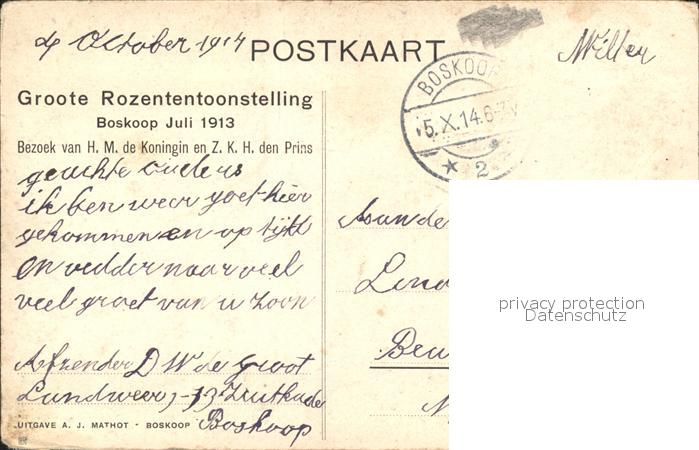 4 October 1914
POSTKAART
Milter
BOSKOOP
5.X.14.6-7V
★ 2
Groote Rozententoonstelling
Boskoop Juli 1913
Bezoek van H. M. de Koningin en Z. K. H. den Prins
geachte ouders
ik ben weer goet hier
gekommen en op tijtt
en vedder naar veel
veel groet van u zoon
Afzender D W de Groot
Landweer 1-13 Zuitkade
Boskoop
UITGAVE A. J. MATHOT - BOSKOOP
Aan de
Beu
privacy protection
Datenschutz